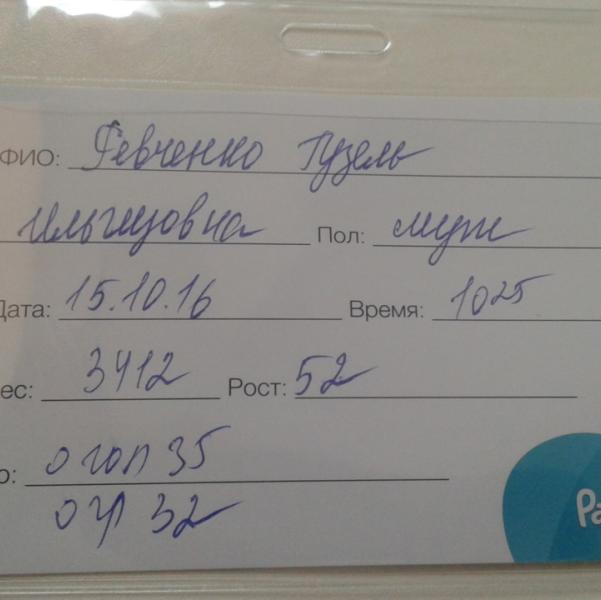 ФИО: Ревченко Гузель
Ильгизовна Пол: муж
Дата: 15.10.16 Время: 10 25
ес: 3412 Рост: 52
о: О гол 35
О гр 32
Pa